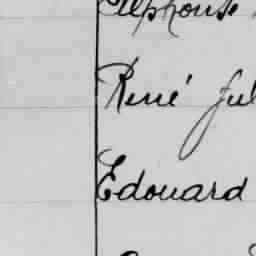 Alphonse
René Jul
Edouard